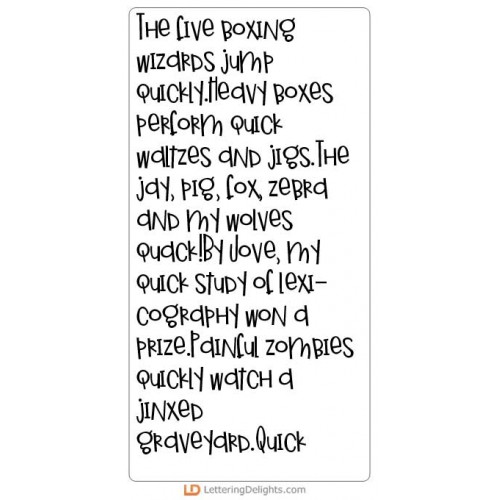 The five boxing
wizards jump
quickly.Heavy boxes
perform quick
waltzes and jigs.The
jay, pig, fox, zebra
and my wolves
quack!By Jove, my
quick study of lexi-
cography won a
prize.Painful zombies
quickly watch a
jinxed
graveyard.Quick
LD LetteringDelights.com